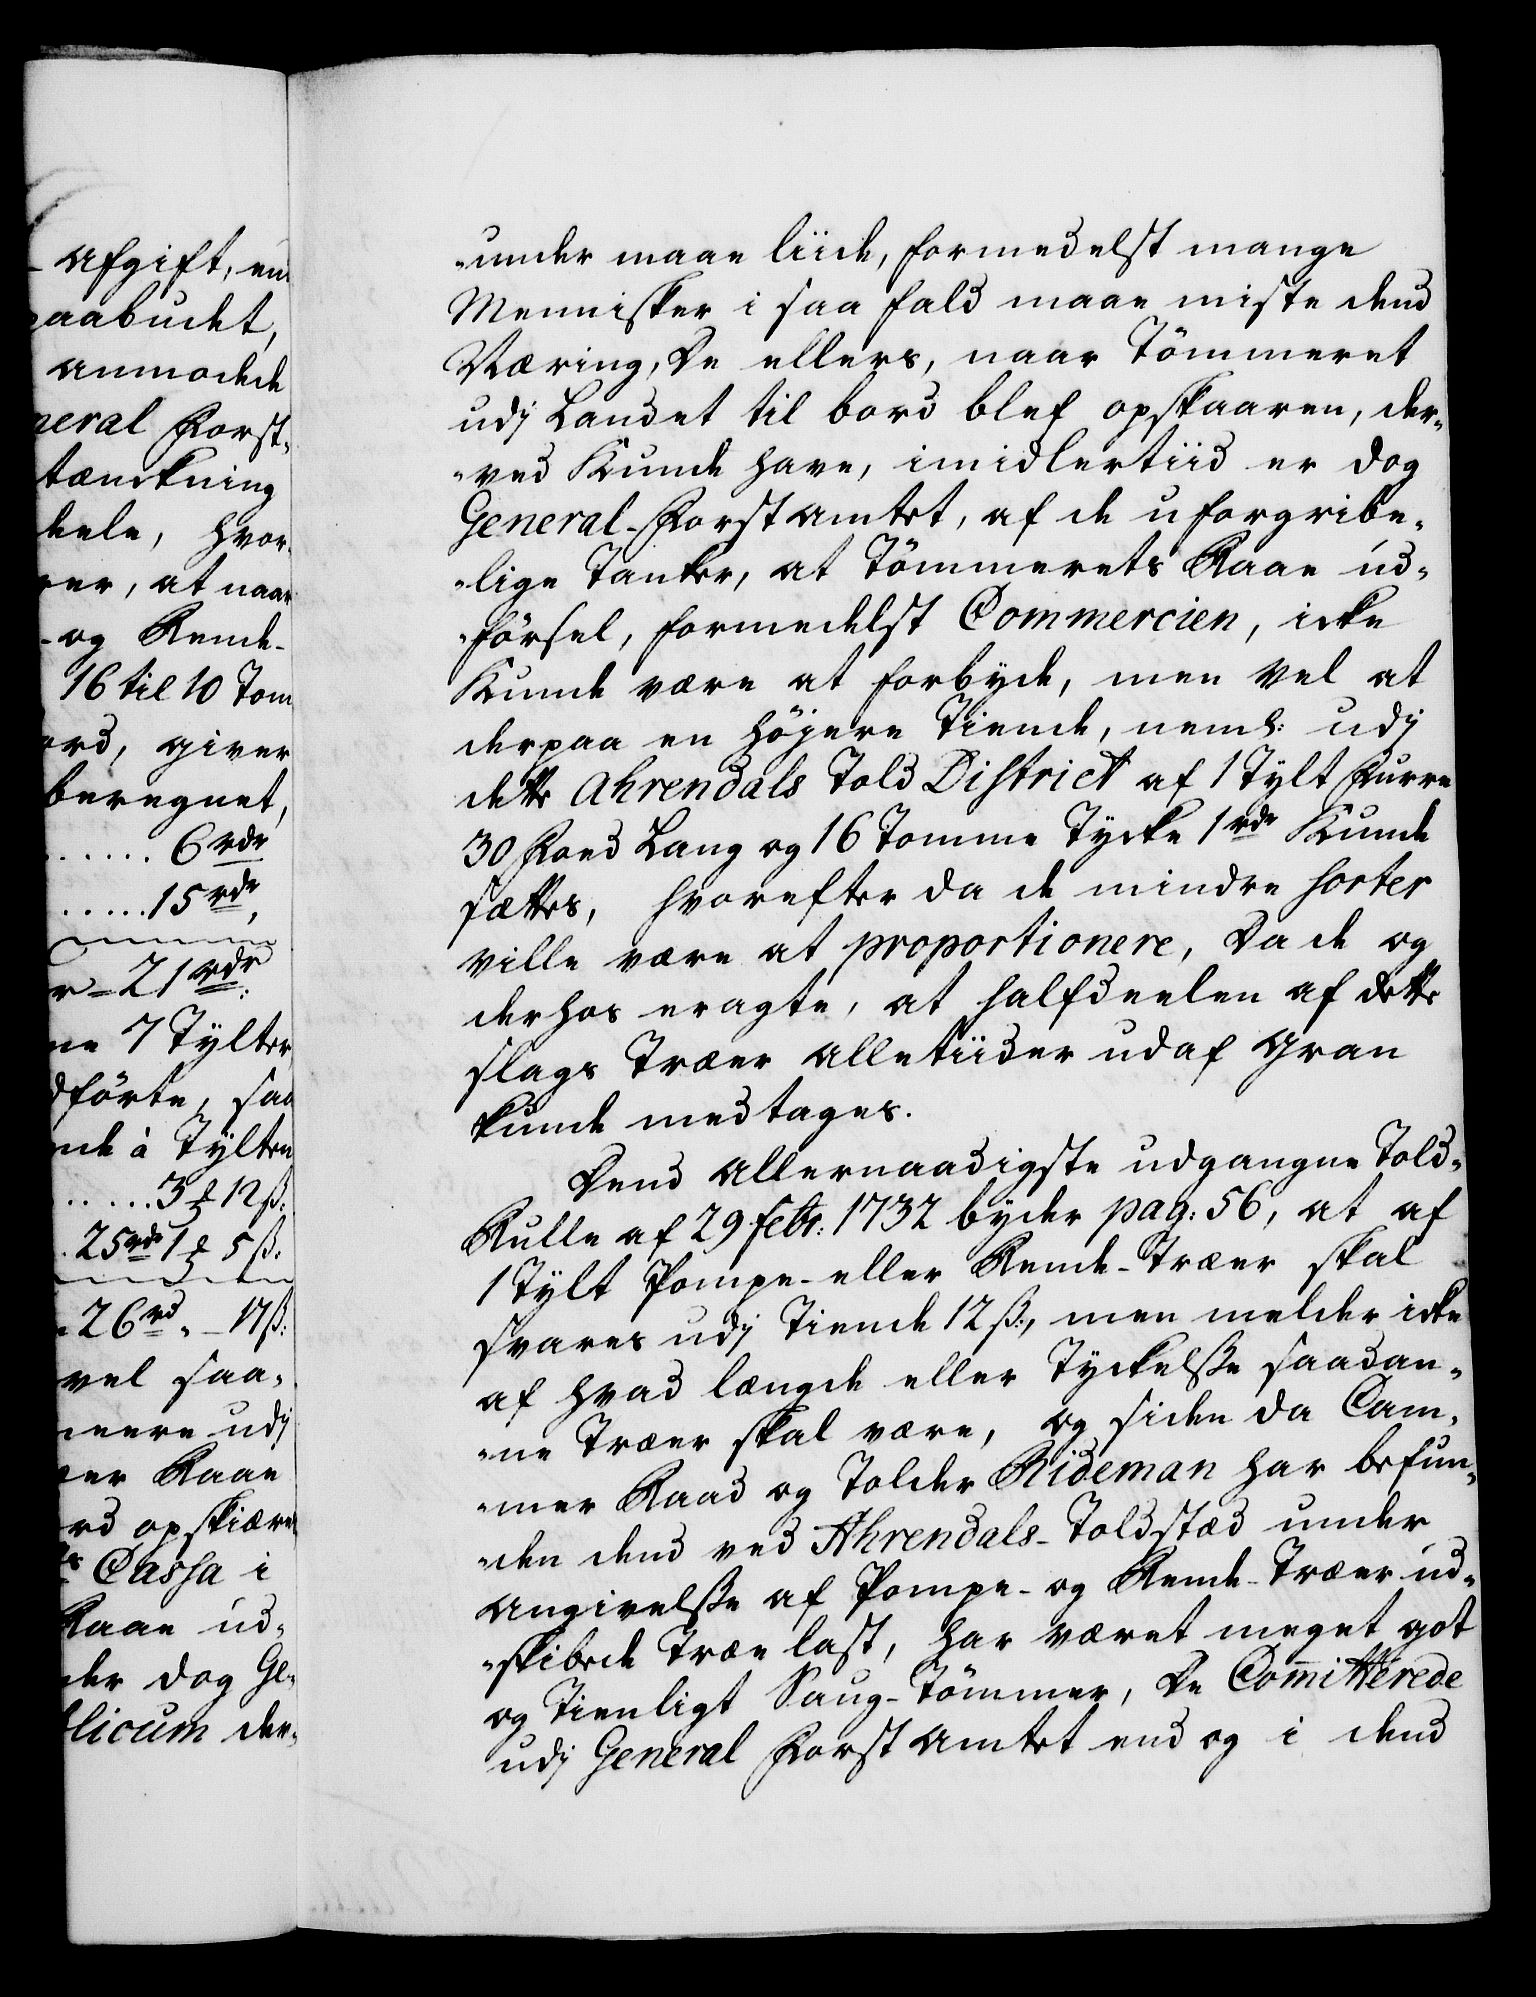 Afgift, en
paabudet,
anmodede
neral Forst-
tænckning
deele, hvor-
rer, at naar
- og Rende-
16 til 10 Tom
ord, giver
beregnet,
...... 6 rdr
..... 15 rdr,
r = 21 rdr:
ne 7 Tylter
dförte, saa
nde à Tylten
..... 3 12 ß:
. 25 rdr 1 5 ß:
. 26 rd. - 17 ß:
vel saa-
meere udj
er Raae
rd opskiære
Cassa i
Raae ud-
der dog Ge-
licum der-
-under maae liide, formedelst mange
Mennisker i saa fald maae miste dend
Næring, de ellers, naar Tömmeret
udj Landet til bord blef opskaaren, der-
-ved Kunde have, imidlertiid er dog
General-Forst Amtet, af de uforgribe-
-lige Tanker, at Tömmerets Raae ud-
-försel, formedelst Commercien, icke
Kunde være at forbyde, men vel at
derpaa en höjere Tiende, neml: udj
dette Ahrendals Told District af 1 Tylt Furre
30 Foed Lang og 16 Tomme Tycke 1 rdr Kunde
sættes, hvorefter da de mindre sorter
ville være at proportionere, da de og
derhos eragte, at halfdeelen af dette
slags Træer alletiider udaf Gran
kunde medtages.
Dend Allernaadigste udgangne Told-
Rulle af 29 febr: 1732 byder pag: 56, at af
1 Tylt Pompe- eller Rende-Træer skal
svares udj Tiende 12 ß:, men melder icke
af hvad længde eller Tyckelsse saadan-
-ne Træer skal være, og siden da Cam-
-mer Raad og Tolder Rideman har befun-
-den dend ved Ahrendals-Toldstæd under
Angivelsse af Pompe- og Rende-Træer ud-
-skibede Træe last, har været meget got
og Tienligt Saug-Tömmer, de Committerede
udj General Forst Amtet end og i dend